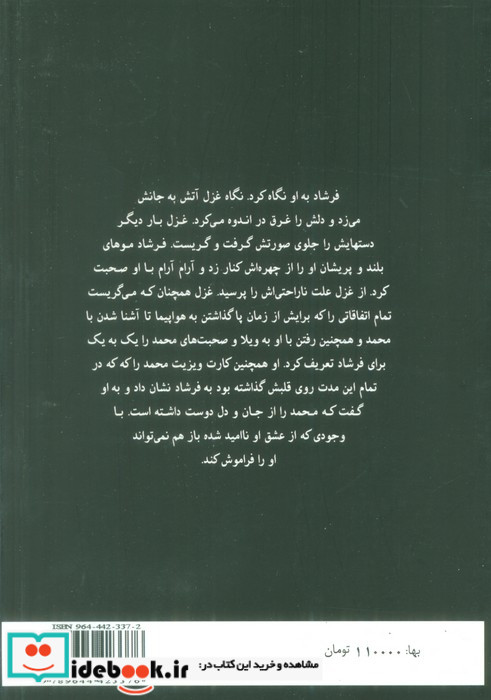 فرشاد به او نگاه کرد. نگاه غزل آتش به جانش
می‌زد و دلش را غرق در اندوه می‌کرد. غزل بار دیگر
دستهایش را جلوی صورتش گرفت و گریست. فرشاد موهای
بلند و پریشان او را از چهره‌اش کنار زد و آرام آرام با او صحبت
کرد. از غزل علت ناراحتی‌اش را پرسید. غزل همچنان که می‌گریست
تمام اتفاقاتی را که برایش از زمان پاگذاشتن به هواپیما تا آشنا شدن با
محمد و همچنین رفتن با او به ویلا و صحبت‌های محمد را یک به یک
برای فرشاد تعریف کرد. او همچنین کارت ویزیت محمد را که که در
تمام این مدت روی قلبش گذاشته بود به فرشاد نشان داد و به او
گفت که محمد را از جان و دل دوست داشته است. با
وجودی که از عشق او ناامید شده باز هم نمی‌تواند
او را فراموش کند.
ISBN 964-442-337-2
بها: ۱۱۰۰۰۰ تومان
مشاهده و خرید این کتاب در:
idebook.ir